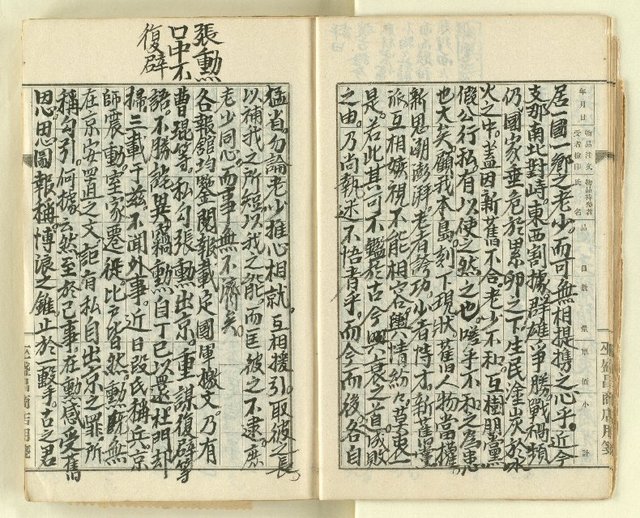 居一國一鄉之老少而可無相提攜之心乎近今
支那南北對峙東西割據群雄爭勝戰禍頻
仍國家垂危於累卵之下生民塗炭於水
火之中蓋因新舊不合老少不和互樹朋黨
假公行私有以使之然之也嗟乎不和之為患
也大矣顧我本島刻下現狀舊日人物當權
新思潮澎湃老者誇功少者恃才新舊當
派互相嫉視不能相容輿情紛々莫衷一
是若此其可不鑑於古今興衰之首成敗
之由乃尚執迷不悟者乎而今以後各自
猛省勿論老少推心相就互相援引取彼之長
以補我之所短以我之能而匡彼之不逮庶
老少同心而事無不濟矣
張勳
口中不
復辟
各報舘均鑒閱報載定國軍檄文乃有
曹錕等私勾張勳出京重謀復辟等
語不勝詫異竊勳自丁巳以還杜門却
掃三載于茲不聞外事近日段氏稱兵京
師震動室家遷從比戶皆然勳斷無
在京安置之文詎有私自出京之罪所
稱勾引何據云然至於已事在勳咸受舊
恩思圖報稱博浪之錐止於一擊千古之君
年月日
品目
數量
單價
小計